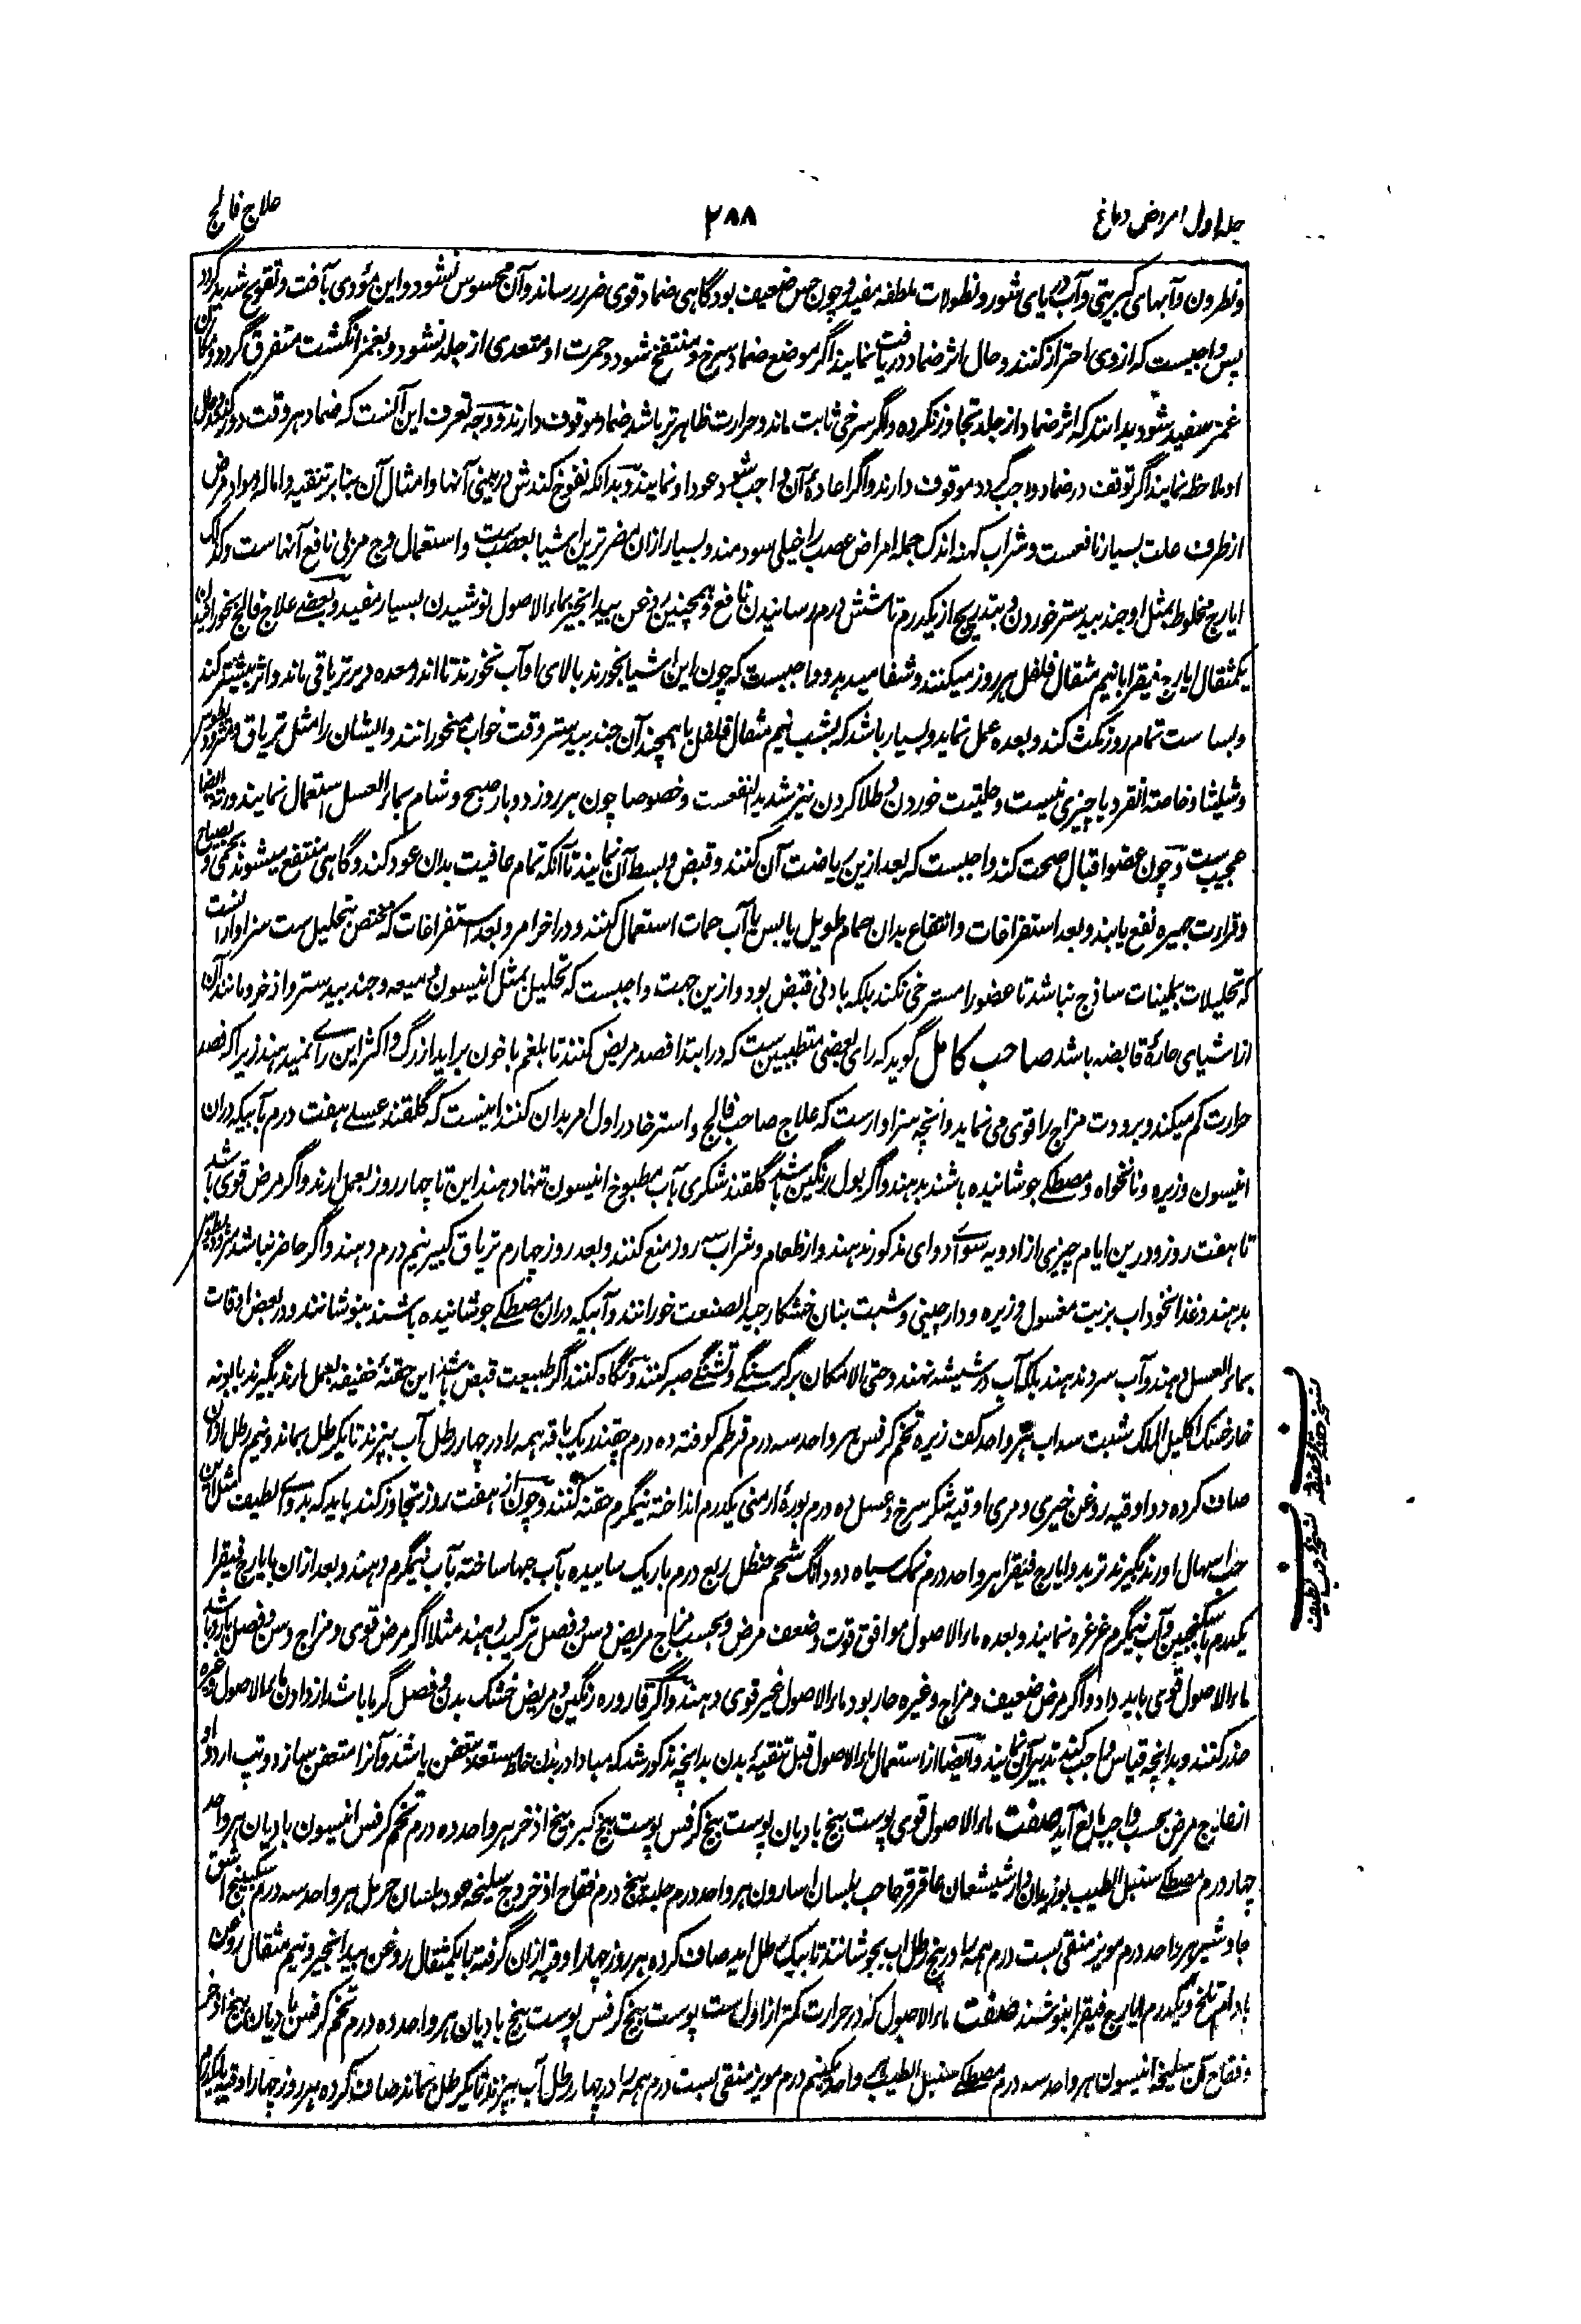 جلد اول امراض دماغ
۲۸۸
علاج فالج
و نطرون و آبهای کبریتی و آب دریای شور و نطولات ملطفه مفید و چون حس ضعیف بود گاهی ضماد قوی ضرر رساند و آن محسوس نشود و این مؤدی بآفت و تقویح شدید گردد
پس واجبست که از وی احتراز کنند و حال اثر ضماد دریافت نمایند اگر موضع ضماد سرخ و منتفخ شود و حمرت او متعدی از جلد نشود و بغمز انگشت متفرق گردد و مکان آن
غمز سفید شود بدانند که اثر ضماد از جلد تجاوز نکرده و اگر سرخی ثابت ماند و حرارت ظاهرتر باشد ضماد موقوف دارند و وجه تعرف این آنست که ضماد هر وقت دور کنند و حال
او ملاحظه نمایند اگر توقف در ضماد واجب گردد موقوف دارند و اگر اعادهٔ آن واجب شود عود او نمایند و بدانکه نفوخ کندش در بینی آنها و امثال آن بنابر تنقیه و امالهٔ مواد مرض
از طرف علت بسیار نافعست و شراب کهنه اندک جمله امراض عصب را خیلی سودمند و بسیار ازان مضرترین اشیا بعصب ست و استعمال وج مربی نافع آنهاست و کذلک
ایارج مخلوط بمثل او جندبیدستر خوردن و بتدریج از یکدرم تا شش درم رسانیدن نافع و همچنین روغن بیدانجیر بماء الاصول نوشیدن بسیار مفید و بعضے علاج فالج بخورانیدن
یکمثقال ایارج فیقرا با نیم مثقال فلفل هر روز میکنند و شفا میدهد و واجبست که چون این اشیا بخورند بالای او آب نخورند تا اندر معده دیرتر باقی ماند و اثر بیشتر کند
و بسا ست تمام روز مکث کند و بعده عمل نماید و بسیار باشد که بشب نیم مثقال فلفل با همچند آن جندبیدستر وقت خواب میخورانند و ایشان را مثل تریاق و مثرودیطوس
و شلیثا و خاصة انقردیا چیزی نیست و حلتیت خوردن و طلا کردن نیز شدید النفعست و خصوصا چون هر روز دو بار صبح و شام بماء العسل استعمال نمایند و رته ایضا
عجیب ست و چون عضو اقبال صحت کند واجبست که بعد ازین ریاضت آن کنند و قبض و بسط آن نمایند تا آنکه تمام عافیت بدان عود کند و گاهی منتفع میشوند بحمی و بصیاح
و قراءت جهیره نفع یابند و بعد استفراغات و انتفاع بدان حمام طویل یابس یا آب حمات استعمال کنند و در اخر امر و بعد استفراغات که مختص بتحلیل ست سزاوار آنست
که تحلیلات بملینات ساذج نباشد تا عضو را مسترخی نکند بلکه بادنی قبض بود و ازین جهت واجبست که تحلیل بمثل انیسون و میعه و جندبیدستر و اذخر و مانند آن
از اشیای حارهٔ قابضه باشد صاحب کامل گوید که رای بعضی متطببین ست که در ابتدا فصد مریض کنند تا بلغم با خون برآید از رگ و اکثر این رای نمیدهند زیراکه فصد
حرارت کم میکند و برودت مزاج را قوی می نماید و آنچه سزاوارست که علاج صاحب فالج و استرخا در اول امر بدان کنند اینست که گلقند عسلے هفت درم بآبیکه دران
انیسون و زیره و نانخواه و مصطگے جوشانیده باشند بدهند و اگر بول رنگین باشد گلقند شکری بآب مطبوخ انیسون تنها دهند این تا چهار روز بعمل ارند و اگر مرض قوی باشد
تا هفت روز و درین ایام چیزی از ادویه سوای دوای مذکور ندهند و از طعام و شراب سه روز منع کنند و بعد روز چهارم تریاق کبیر نیم درم دهند و اگر حاضر نباشد مثرودیطوس
بدهند و غذا نخوداب بزیت مغسول و زیره و دارچینی و شبت بنان خشکار جید الصنعت خورانند و آبیکه دران مصطگے جوشانیده باشند بنوشانند و در بعض اوقات
بماء العسل دهند و آب سرد ندهند بلکه آب در شیشه نهند و حتی الامکان بر گرسنگے و تشنگے صبر کنند و نگاه کنند اگر طبیعت قبض باشد این حقنهٔ خفیفه بعمل ارند بگیرند بابونه
خارخسک اکلیل الملک شبت سداب هر واحد کف زیره تخم کرفس هر واحد سه درم قرطم کوفته ده درم چقندر یک باقه همه را در چهار رطل آب بپزند تا یک رطل بماند و نیم رطل ازان
صاف کرده دو اوقیه روغن خیری و مری اوقیه شکر سرخ و عسل ده درم بورهٔ ارمنی یکدرم انداخته نیمگرم حقنه کنند و چون از هفت روز تجاوز کند باید که بدوای لطیف مثل این
حب اسهال اورند بگیرند تربد و ایارج فیقرا هر واحد درم نمک سیاه دو دانگ شحم حنظل ربع درم باریک ساییده بآب حبها ساخته بآب نیمگرم دهند و بعد ازان بایارج فیقرا
یکدرم با سکنجبین و آب نیمگرم غرغره نمایند و بعده ماء الاصول موافق قوت و ضعف مرض و بحسب مزاج مریض و سن و فصل ترکیب دهند مثلا اگر مرض قوی و مزاج و سن و فصل بارد باشد
ماء الاصول قوی باید داد و اگر مرض ضعیف و مزاج وغیره حار بود ماء الاصول غیر قوی دهند و اگر قاروره رنگین و مریض خشک بدن و فصل گرما باشد از دادن ماء الاصول وغیره
حذر کنند و بدانچه قیاس واجب کند تدبیر آن نمایند و ایضا از استعمال ماء الاصول قبل تنقیهٔ بدن بدانچه مذکور شد که مبادا در بدن خلط مستعد تعفن باشد و آنرا متعفن سازد و تپ ارد و او
از علاج مرض بحسب واجب مانع آید صفت ماء الاصول قوی پوست بیخ بادیان پوست بیخ کرفس پوست بیخ کبر بیخ اذخر هر واحد ده درم تخم کرفس انیسون بادیان هر واحد
چهار درم مصطگے سنبل الطیب بوزیدان دارشیشعان عاقرقرحا حب بلسان اسارون هر واحد درم حلبه پنج درم فقاح اذخر وج سلیخه عود بلسان حرمل هر واحد سه درم سکبینج اشق
جاوشیر هر واحد درم مویز منقی بست درم همه را در پنج رطل اب بجوشانند تا بیک رطل اید صاف کرده هر روز چهار اوقیه ازان گرفته با یکمثقال روغن بیدانجیر و نیم مثقال روغن
بادام تلخ و یکدرم ایارج فیقرا بنوشند صفت ماء الاصول که در حرارت کمتر از اول ست پوست بیخ کرفس پوست بیخ بادیان هر واحد ده درم تخم کرفس بادیان بیخ اذخر
و فقاح آن سلیخه انیسون هر واحد سه درم مصطگے سنبل الطیب هر واحد یکنیم درم مویز منقی بست درم همه را در چهار رطل آب بپزند تا یکرطل بماند صاف کرده هر روز چهار اوقیه با یکدرم
نسخهٔ حقنهٔ خفیفه
نسخهٔ حب لطیف